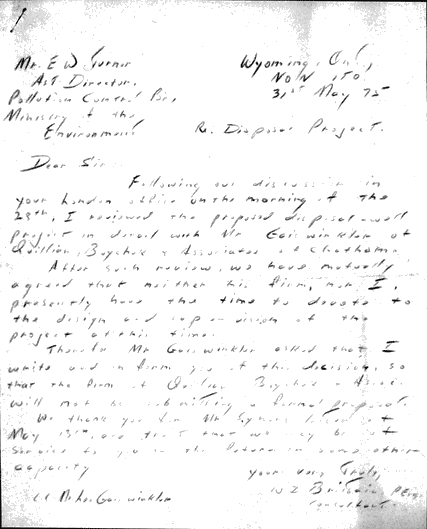 Mr. E W Turner
Ast. Director,
Pollution Control Br,
Ministry of the
Environment
Wyoming, Ont,
NON 1TO
31st May 75
Re. Disposal Project.
Dear Sir:
Following our discussion in
your London office on the morning of the
28th, I reviewed the proposed disposal well
project in detail with Mr. of
& Associates of Chatham.
After such review, we have mutually
agreed that neither his firm, nor I,
presently have the time to devote to
the design and supervision of the
project at this time.
Mr. asked that I
write and inform you of this decision, so
that the firm of & Assoc.
will not be submitting a formal proposal.
We thank you for Mr letter of
May 13th, and trust that we may be of
service to you in the future in some other
capacity
Yours Very Truly,
W Z
Consultant
cc Mr